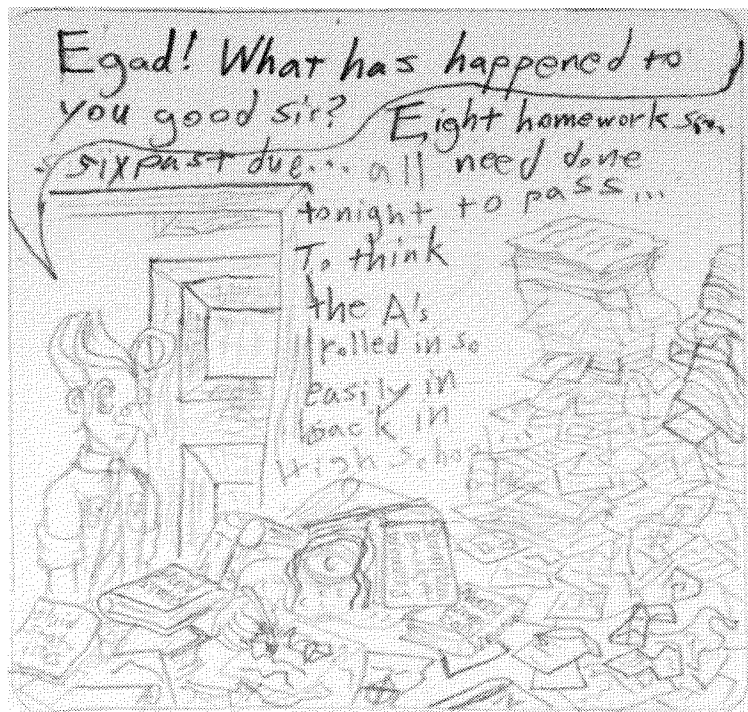 Egad! What has happened to
you good sir?
Eight homeworks...
six past due... all need done
tonight to pass...
To think
the A's
rolled in so
easily in
back in
High school...